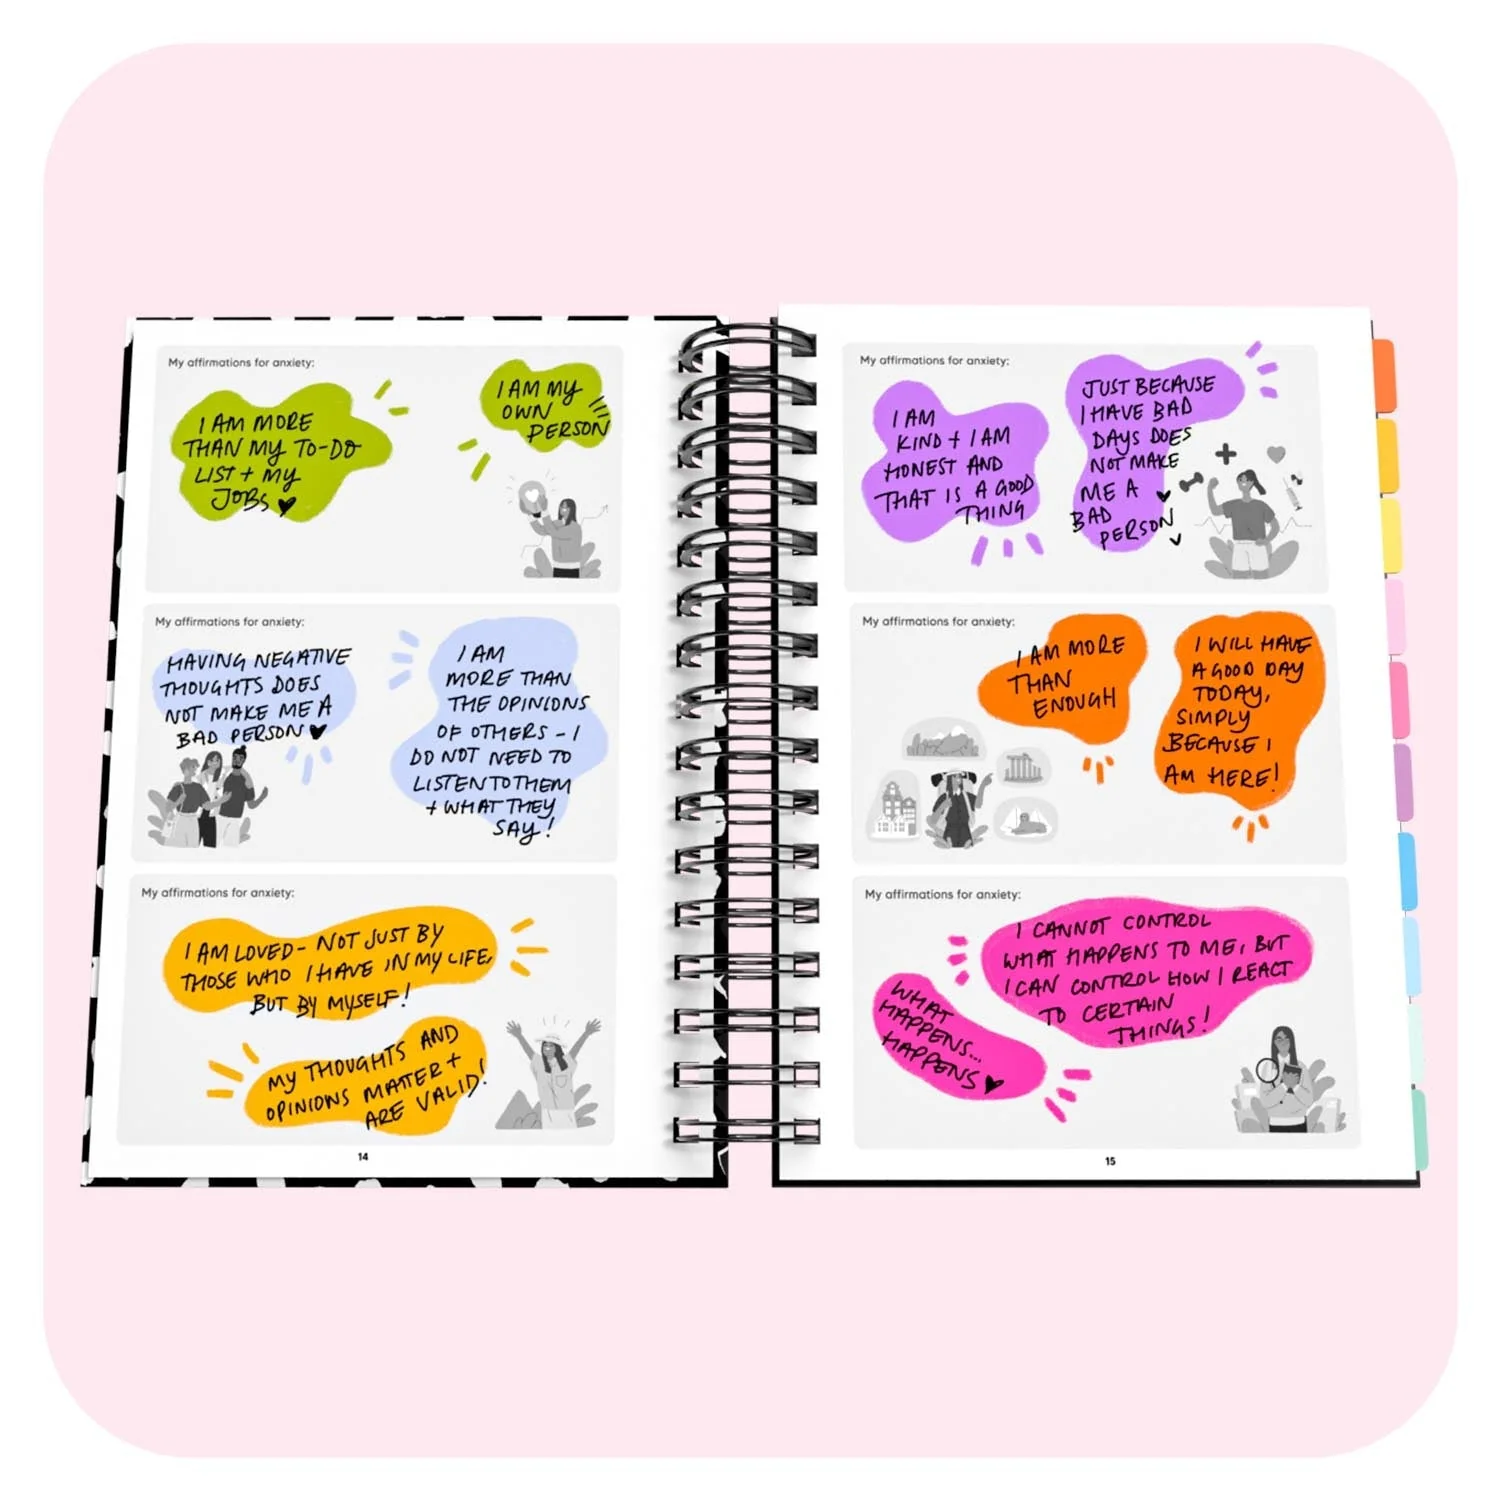 My affirmations for anxiety:
I AM MORE
THAN MY TO-DO
LIST + MY
JOBS
I AM MY
OWN
PERSON
My affirmations for anxiety:
HAVING NEGATIVE
THOUGHTS DOES
NOT MAKE ME A
BAD PERSON
I AM
MORE THAN
THE OPINIONS
OF OTHERS - I
DO NOT NEED TO
LISTEN TO THEM
+ WHAT THEY
SAY!
My affirmations for anxiety:
I AM LOVED - NOT JUST BY
THOSE WHO I HAVE IN MY LIFE,
BUT BY MYSELF!
MY THOUGHTS AND
OPINIONS MATTER +
ARE VALID!
14
My affirmations for anxiety:
I AM
KIND + I AM
HONEST AND
THAT IS A GOOD
THING
JUST BECAUSE
I HAVE BAD
DAYS DOES
NOT MAKE
ME A
BAD
PERSON
My affirmations for anxiety:
I AM MORE
THAN
ENOUGH
I WILL HAVE
A GOOD DAY
TODAY,
SIMPLY
BECAUSE I
AM HERE!
My affirmations for anxiety:
I CANNOT CONTROL
WHAT HAPPENS TO ME, BUT
I CAN CONTROL HOW I REACT
TO CERTAIN
THINGS!
WHAT
HAPPENS...
HAPPENS
15